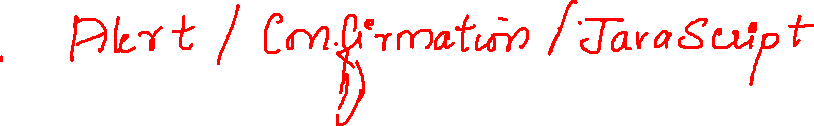 Alert / Confirmation / JavaScript